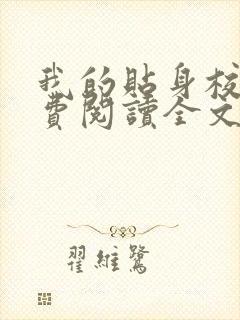 我的貼身校
費閱讀全文
翟維鷺